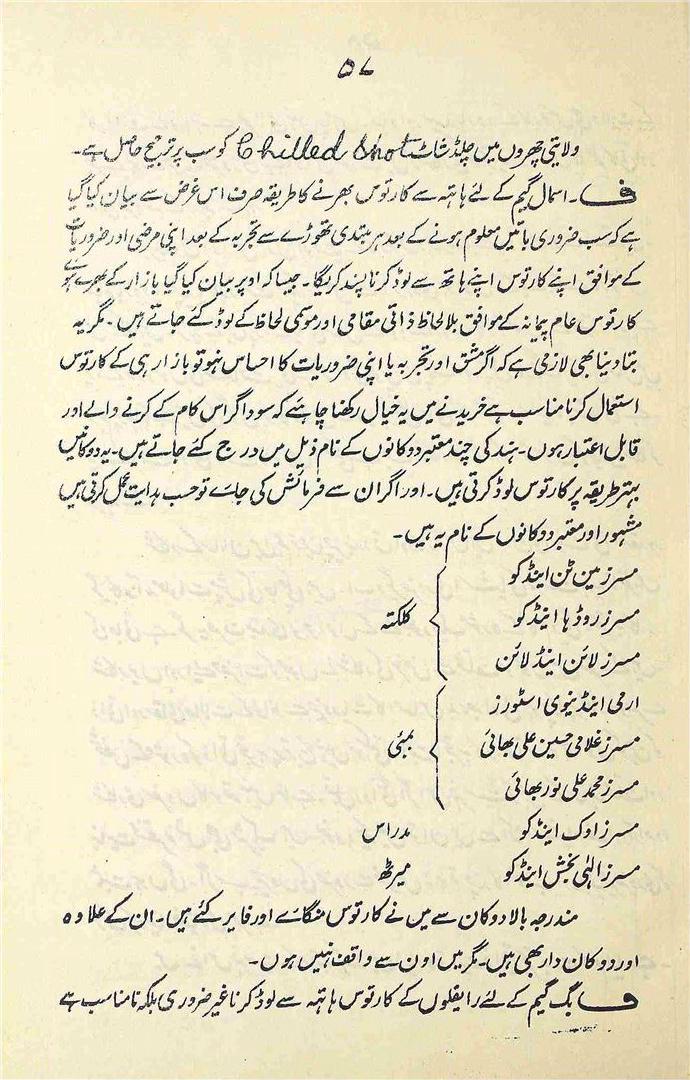 ۵۷
ولایتی چھروں میں چلڈ شاٹ Chilled Shot کو سب پر ترجیح حاصل ہے۔
ف۔ اسمال گیم کے لئے ہاتہ سے کارتوس بھرنے کا طریقہ صرف اس غرض سے بیان کیا گیا
ہے کہ سب ضروری باتیں معلوم ہونے کے بعد ہر مبتدی تھوڑے سے تجربہ کے بعد اپنی مرضی اور ضروریات
کے موافق اپنے کارتوس اپنے ہاتھ سے لوڈ کرنا پسند کریگا۔ جیسا کہ اوپر بیان کیا گیا بازار کے بھرے ہوئے
کارتوس عام پیمانہ کے موافق بلا لحاظ ذاتی مقامی اور موسمی لحاظ کے لوڈ کئے جاتے ہیں۔ مگر یہ
بتا دینا بھی لازمی ہے کہ اگر مشق اور تجربہ یا اپنی ضروریات کا احساس نہو تو بازار ہی کے کارتوس
استعمال کرنا مناسب ہے خریدنے میں یہ خیال رکھنا چاہئے کہ سوداگر اس کام کے کرنے والے اور
قابل اعتبار ہوں۔ ہند کی چند معتبر دوکانوں کے نام ذیل میں درج کئے جاتے ہیں۔ یہ دوکانیں
بہتر طریقہ پر کارتوس لوڈ کرتی ہیں۔ اور اگر ان سے فرمائش کی جاے تو حسب ہدایت عمل کرتی ہیں
مشہور اور معتبر دوکانوں کے نام یہ ہیں۔
مسرز مین ٹن اینڈ کو
مسرز روڈہا اینڈ کو کلکتہ
مسرز لائن اینڈ لائن
ارمی اینڈ نیوی اسٹورز
مسرز غلامی حسین علی بھائی بمبئی
مسرز محمد علی نور بھائی
مسرز اوک اینڈ کو مدراس
مسرز الہٰی بخش اینڈ کو میرٹھ
مندرجہ بالا دوکان سے میں نے کارتوس منگاے اور فایر کئے ہیں۔ ان کے علاوہ
اور دوکان دار بھی ہیں۔ مگر میں اون سے واقف نہیں ہوں۔
ف بگ گیم کے لئے رایفلوں کے کارتوس ہاتہ سے لوڈ کرنا غیر ضروری بلکہ نامناسب ہے